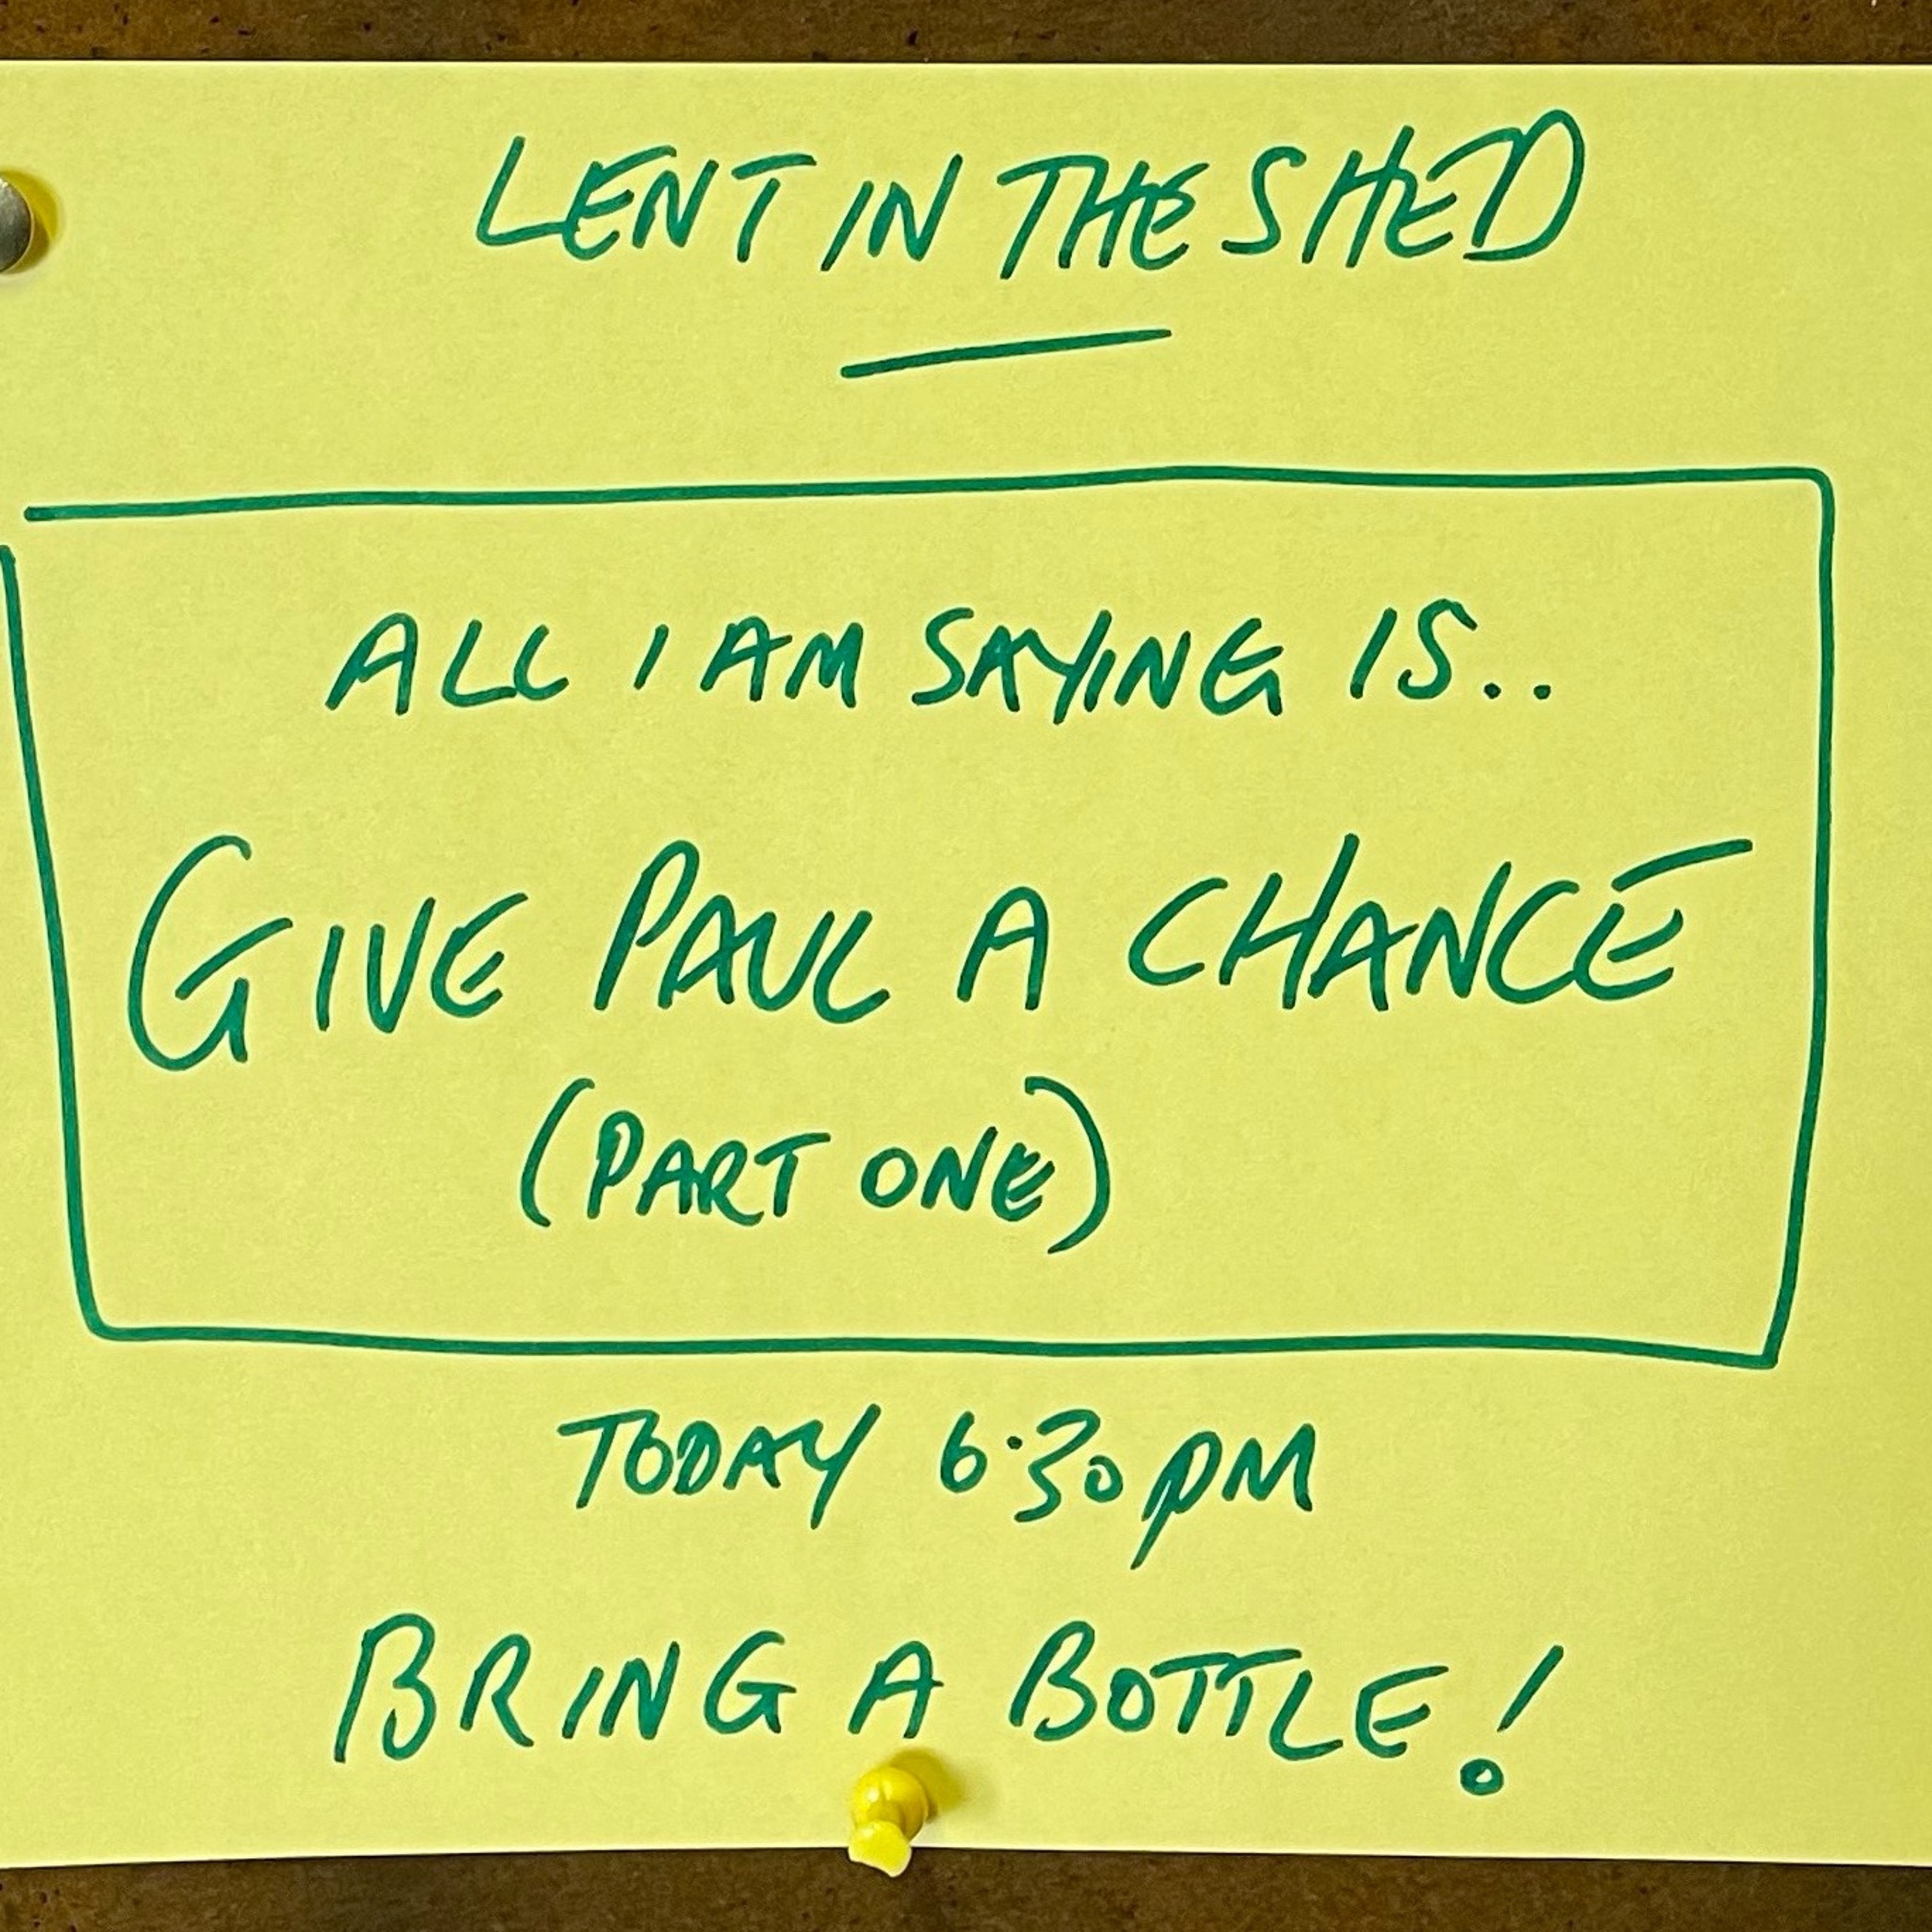 LENT IN THE SHED
ALL I AM SAYING IS..
GIVE PAUL A CHANCE
(PART ONE)
TODAY 6·30pM
BRING A BOTTLE!